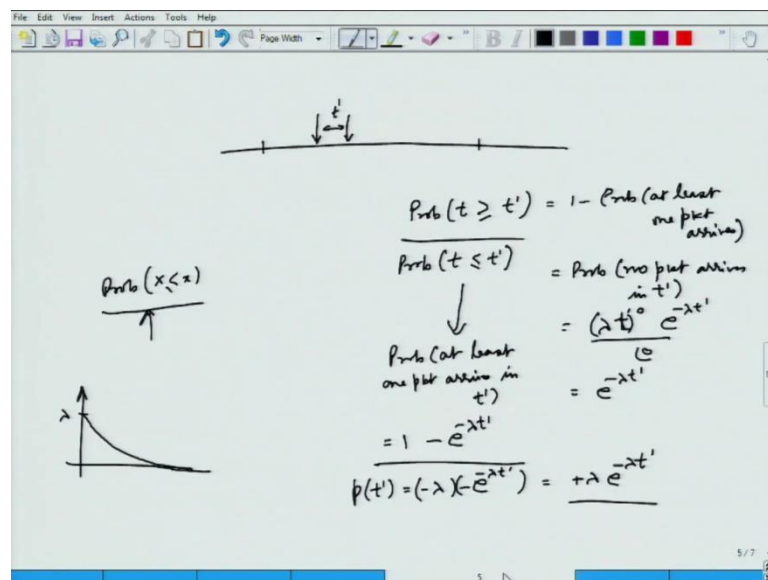 File Edit View Insert Actions Tools Help
Page Width
B I
t'
Prob(t ≥ t') = 1 - Prob(at least
one pkt
arrives)
Prob(t ≤ t') = Prob(no pkt arrives
in t')
Prob(x ≤ x)
= (λt')⁰ e^{-λt'}
Prob(at least
one pkt arrives in
t')
= e^{-λt'}
λ
= 1 - e^{-λt'}
p(t') = (-λ)(-e^{-λt'}) = +λ e^{-λt'}
5/7
5